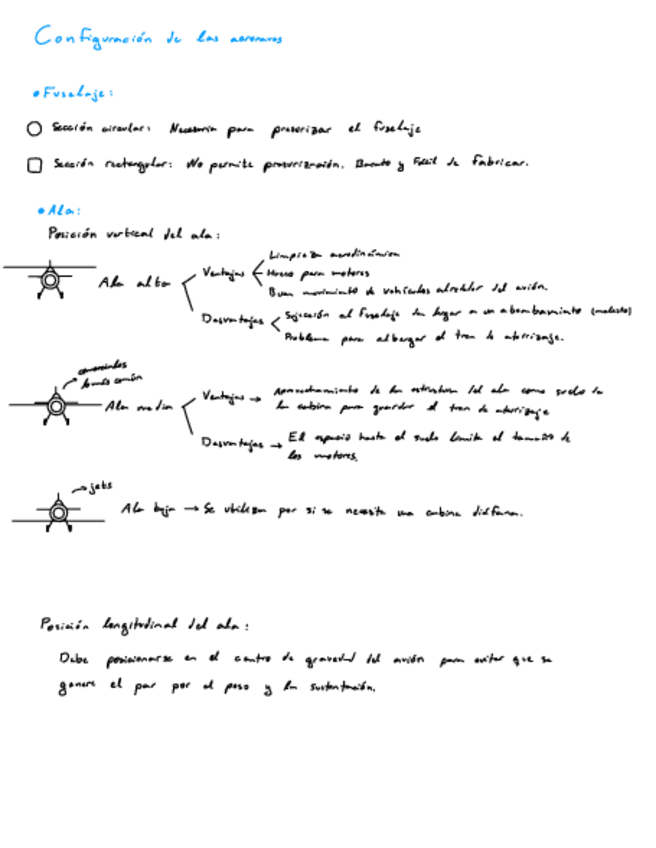 Configuración de las aeronaves
• Fuselaje:
Sección circular: Necesaria para presurizar el fuselaje
Sección rectangular: No permite presurización. Barato y Fácil de fabricar.
• Ala:
Posición vertical del ala:
Ala alta
Ventajas
Limpieza aerodinámica
Hueco para motores
Buen movimiento de vehículos alrededor del avión.
Desventajas
Sujección al fuselaje da lugar a un abombamiento (molesto)
Problema para albergar el tren de aterrizaje.
comerciales
lo más común
Ala media
Ventajas → Aprovechamiento de la estructura del ala como suelo de
la cabina para guardar el tren de aterrizaje
Desventajas → El espacio hasta el suelo limita el tamaño de
los motores.
→ jets
Ala baja → Se utilizan por si se necesita una cabina diáfana.
Posición longitudinal del ala:
Debe posicionarse en el centro de gravedad del avión para evitar que se
genere el par por el peso y la sustentación.